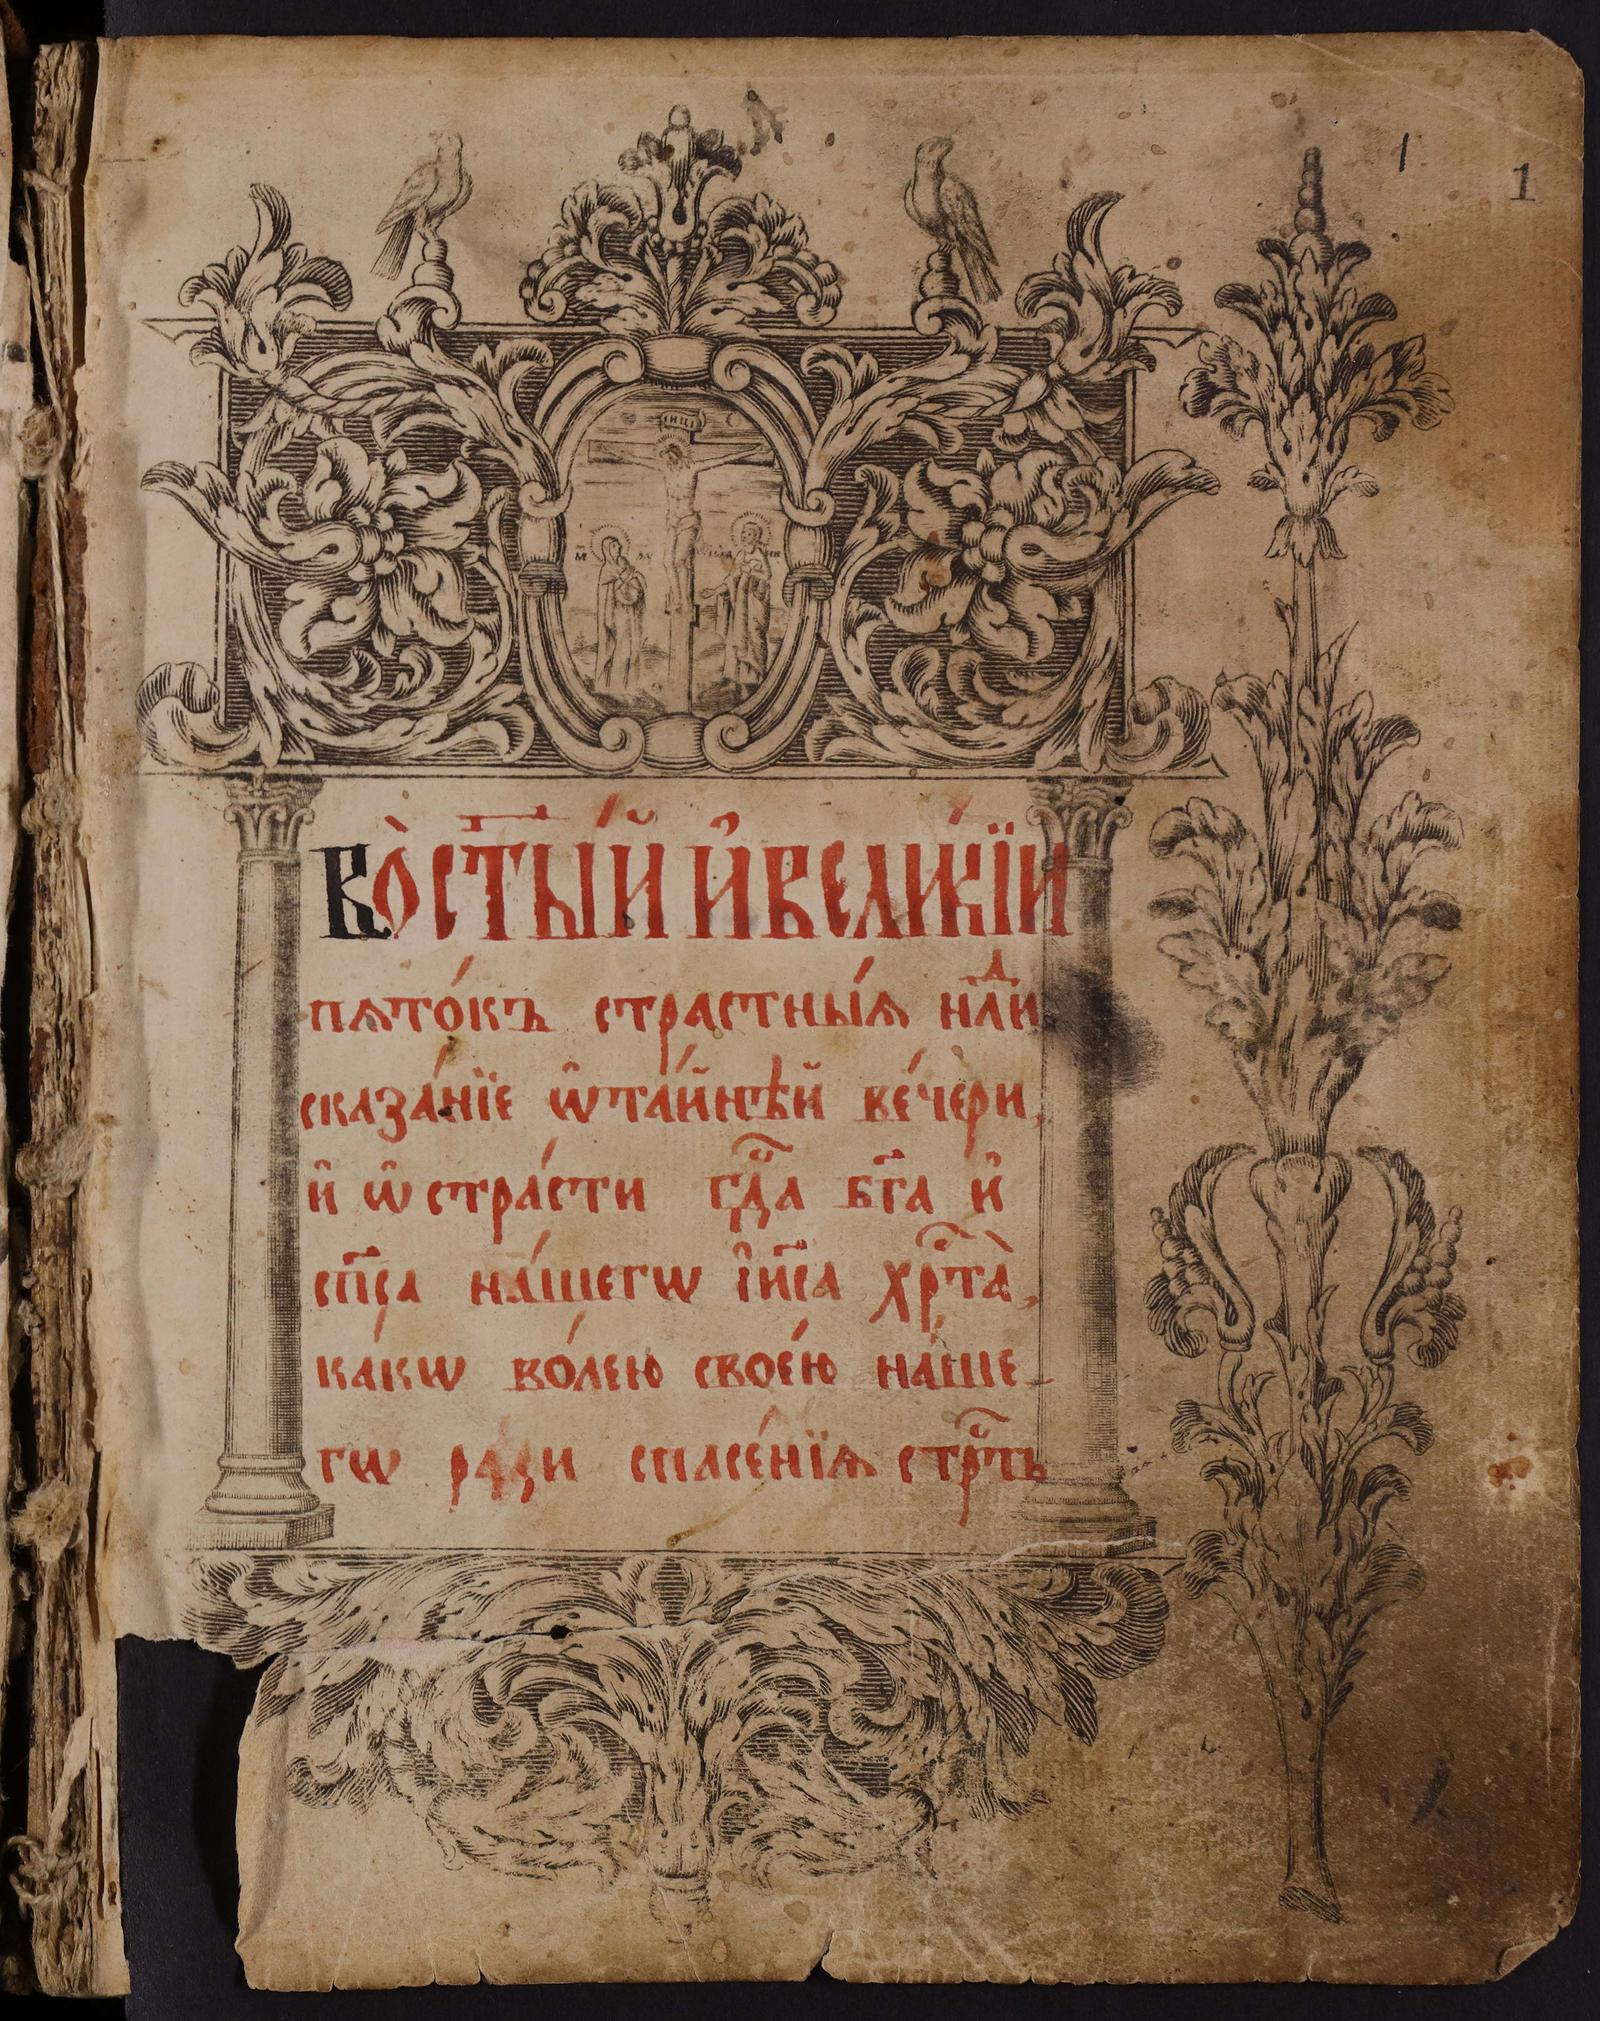 1
ІНЦІ
Во̀ст҃ы́й и҆вели́кїи
пѧто́къ страстны́ѧ нлⷣи
сказа́нїе ѡ҆та́йнѣй ве́чери,
и҆ ѡ҆ стра́сти гдⷭ҇а бг҃а и҆
сп҃са на́шегѡ і҆и҃са хрⷭ҇та̀,
ка́кѡ во́лею свое́ю на́ше
гѡ ради спасе́нїѧ стрⷭ҇ть